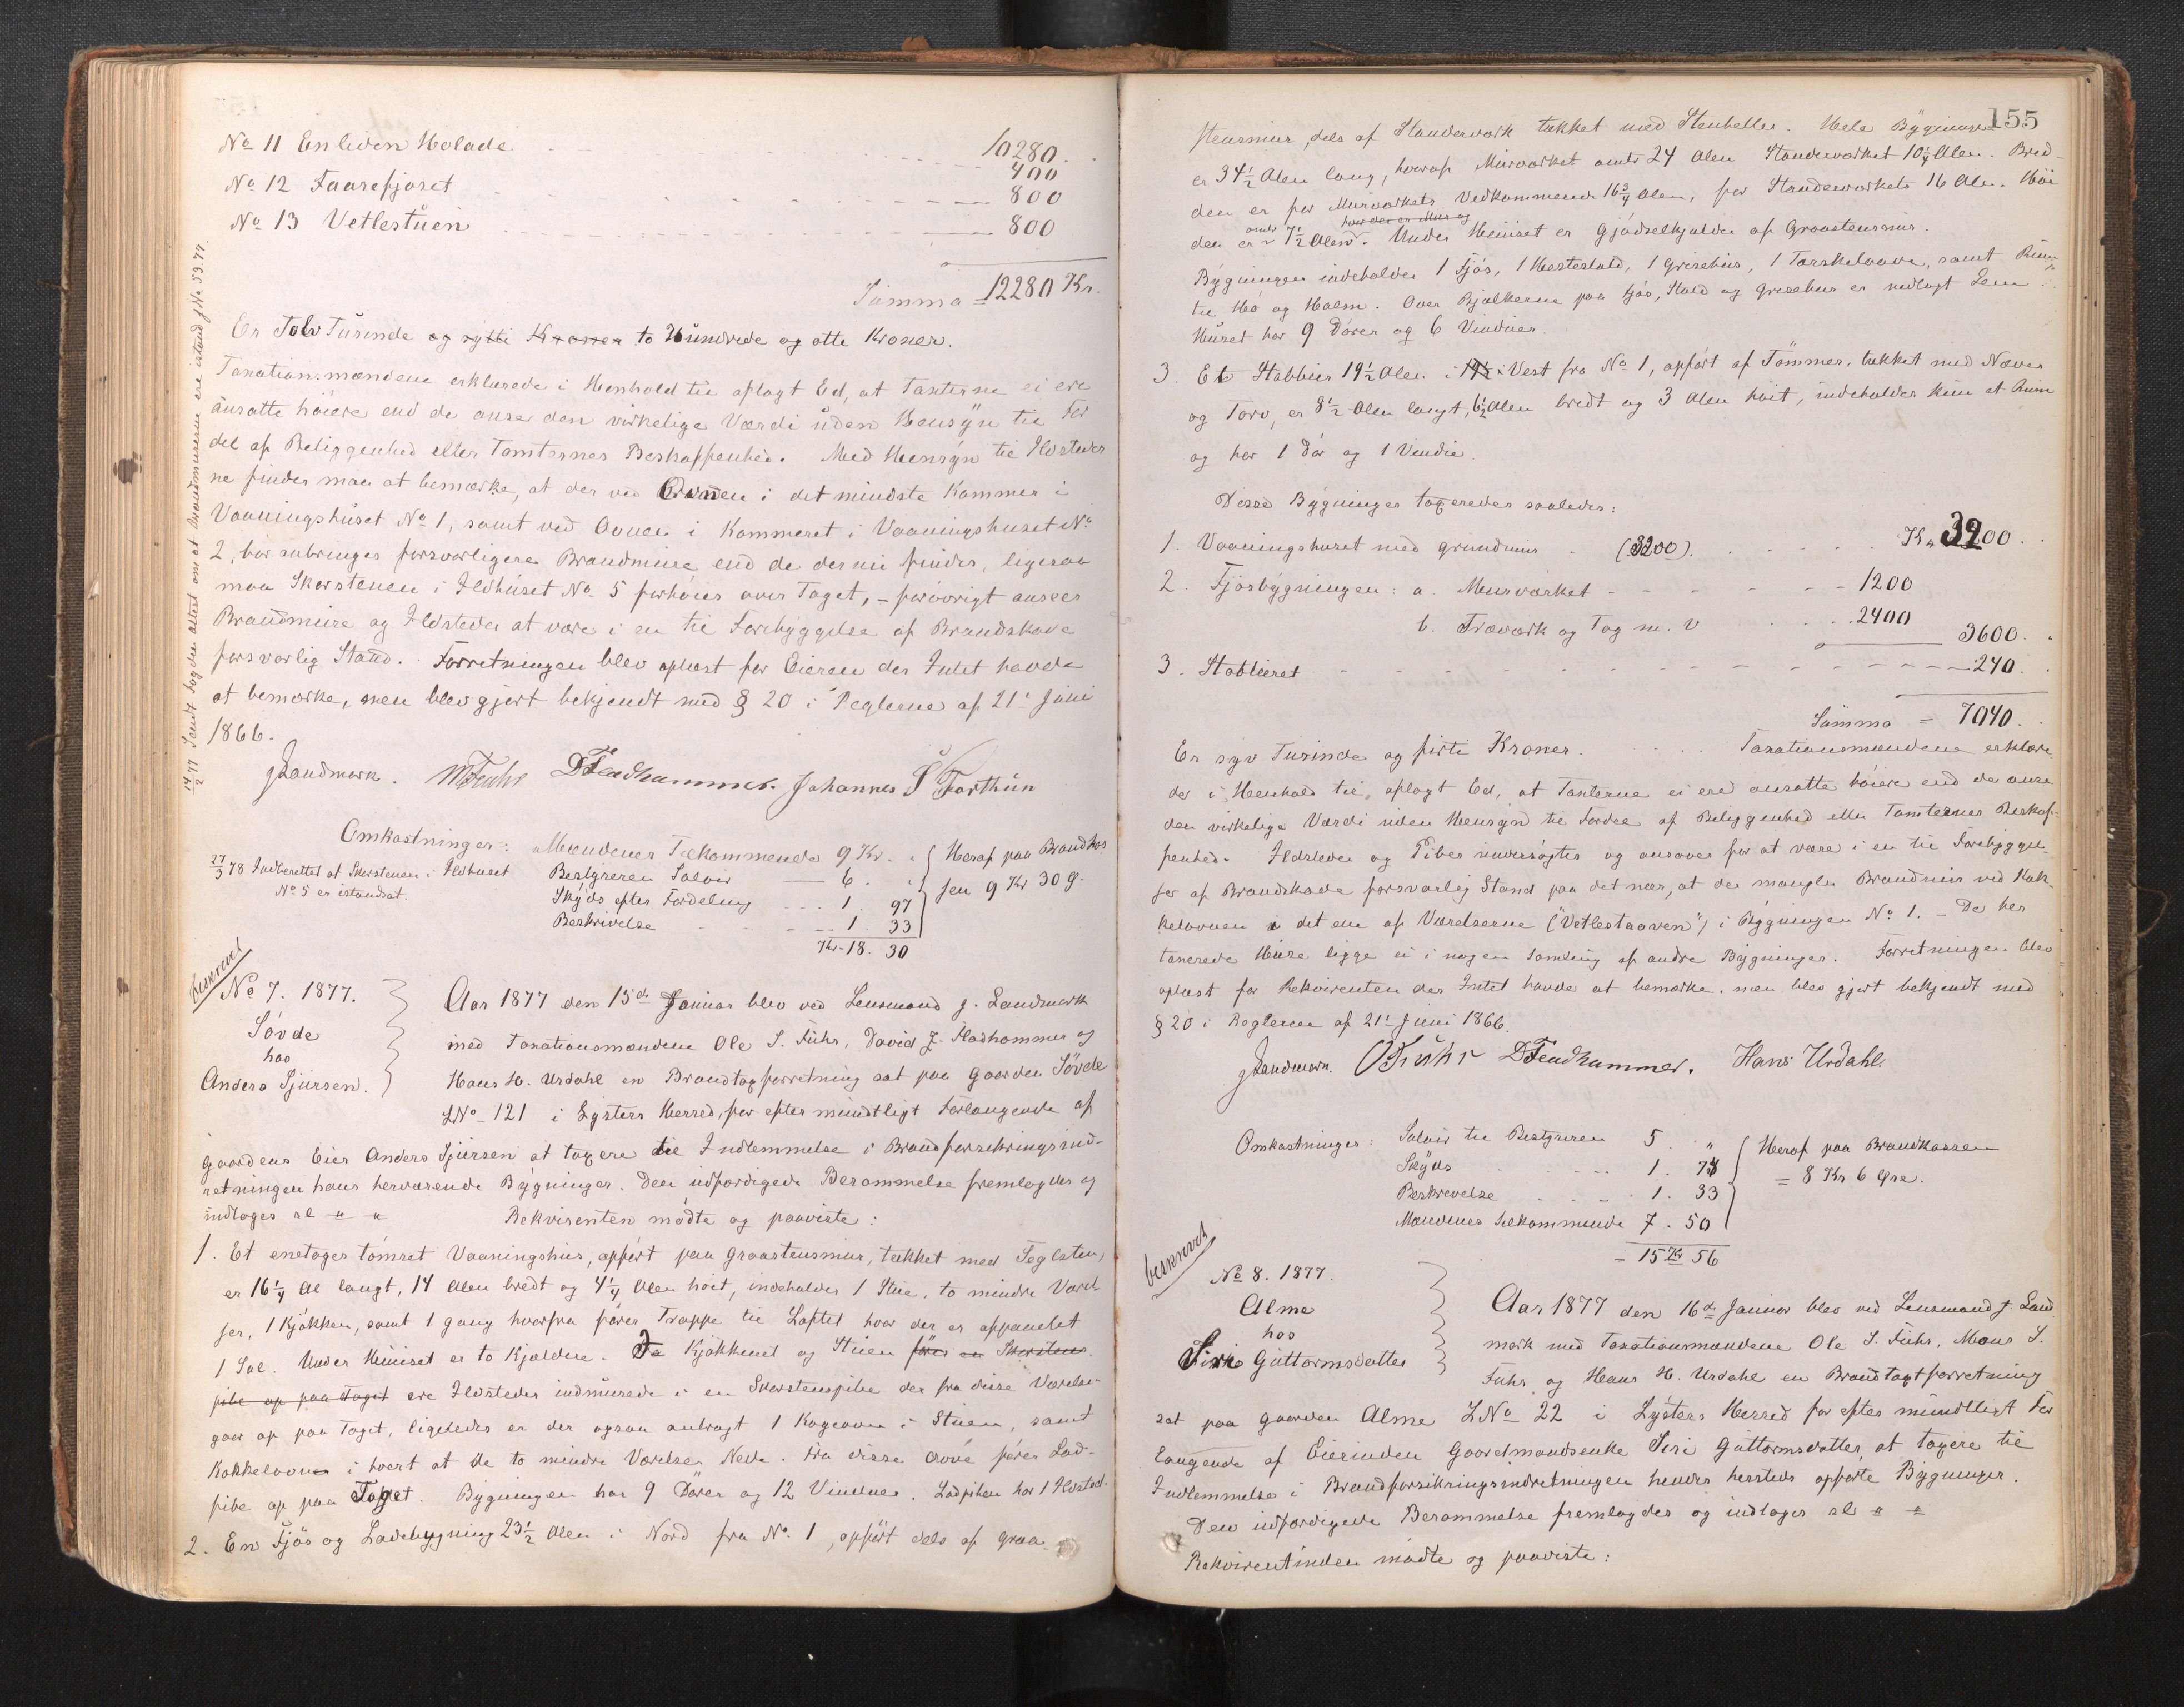 10280.
No 11 En liden Hølade 400
No 12 Faarefjøset 800
No 13 Vetlestuen 800
Summa = 12280 Kr.
Er Tolv Tusinde og ogtti Kroner to Hundrede og otte Kroner.
Taxationsmændene erklærede i Henhold til aflagt Ed, at Taxterne ei ere
ansatte høiere end de anse den virkelige Værdi uden Hensyn til For
del af Beliggenhed eller Tomternes Beskaffenhed. Med Hensyn til Ildsteder
ne finder man at bemærke, at der ved Ovnen i det mindste Kammer i
Vaaningshuset No 1, samt ved Ovnen i Kammeret i Vaaningshuset No
2, bør anbringes forsvarligere Brandmure end de der nu findes, ligesaa
maa Skorstenen i Ildhuset No 5 forhøies over Taget, – forøvrigt ansees
Brandmure og Ildsteder at være i en til Forebyggelse af Brandskade
forsvarlig Stand. Forretningen blev oplæst for Eieren der Intet havde
at bemærke, men blev gjort bekjendt med § 20 i Reglerne af 21' Juni
1866.
14/2 77 Sendt Fogden attest om at Brandmurene ere istand J No 53.77.
J Landmark. OFuhr DFladhammer. Johannes S Forthun
Omkostninger: Mændenes Tilkommende 9 Kr. " Heraf paa Brandkas
Bestyreren Salair 6. " sen 9 Kr 30 Ø.
Skyds efter Fordeling 1. 97
Beskrivelse 1 33
Kr. 18. 30
27/3 78 Indberettet at Skorstenen i Ildhuset
No 5 er istandsat.
beskrevet
No 7. 1877.
Søvde
hos
Anders Sjursen.
Aar 1877 den 15de Januar blev ved Lensmand J. Landmark
med Taxationsmændene Ole S. Fuhr, David J. Fladhammer og
Hans H. Urdahl en Brandtaxtforretning sat paa Gaarden Søvde
LNo 121 i Lysters Herred, for efter mundtligt Forlangende af
Gaardens Eier Anders Sjursen at taxere til Indlemmelse i Brandforsikringsind-
retningen hans herværende Bygninger. Den udfærdigede Berammelse fremlagdes og
indtages sl " "  Rekvirenten mødte og paaviste:
1. Et enetages tømret Vaaningshus, opført paa Graastensmur, tækket med Teglsten,
er 16 1/4 Al langt, 14 Alen bredt og 4 1/4 Alen høit, indeholder 1 Stue, to mindre Værel
ser, 1 Kjøkken, samt 1 Gang hvorfra fører Trappe til Loftet hvor der er oppanelet
1 Sal. Under Huset er to Kjældere. Fra Kjøkkenet og Stuen fører en Skorstens
pibe op paa Taget ere Ildsteder indmurede i en Skorstenspibe der fra disse Værelser
gaar op paa Taget, ligeledes er der ogsaa anbragt 1 Kogeovn i Stuen, samt
Kakkelovne i hvert at de to mindre Værelser Nede. Fra disse Ovne fører Lod-
pibe op paa Taget. Bygningen har 9 Dører og 12 Vinduer. Lodpiben har 1 Ildsted.
2. En Fjøs og Ladebygning 23 1/2 Alen i Nord fra No 1, opført dels af Graa
155
stensmur, dels af Standerværk tækket med Stenheller. Hele Bygningen
er 34 1/2 Alen lang, hvoraf Murværket omtr 24 Alen Standeværket 10 1/4 Alen. Bred-
den er for Murværkets Vedkommende 16 3/4 Alen, for Standeværkets 16 Alen. Høi
den er omtr 7 1/2 Alen hvor der er Mur og. Under Huset er Gjødselkjelder af Graastensmur.
Bygningen indeholder 1 Fjøs, 1 Hestestald, 1 Grisehus, 1 Tærskelaave, samt Rum
til Hø og Halm. Over Bjælkerne paa Fjøs, Stald og Grisehus er nedlagt Lem.
Huset har 9 Dører og 6 Vinduer.
3. Et Stabbur 19 1/2 Alen i Vest fra No 1, opført af Tømmer, tækket med Næver
og Torv, er 8 1/2 Alen langt, 6 1/2 Alen bredt og 3 Alen høit, indeholder kun et Rum
og har 1 Dør og 1 Vindue.
Disse Bygninger taxeredes saaledes:
1. Vaaningshuset med Grundmur (3200) Kr. 3200
2. Fjøsbygningen: a. Murværket 1200
b. Træværk og Tag m. V 2400 3600.
3. Stabburet 240.
Summa = 7040.
Er syv Tusinde og firti Kroner. Taxationsmændene erklære
der i Henhold til aflagt Ed, at Taxterne ei ere ansatte høiere end de anse
den virkelige Værdi uden Hensyn til Fordel af Beliggenhed eller Tomternes Beskaf-
fenhed. Ildsteder og Piber undersøgtes og ansaaes for at være i en til Forebyggel-
ser af Brandskade forsvarlig Stand paa det nær, at der mangler Brandmur ved Kak-
kelovnen i det ene af Værelserne ("Vetlestaaven") i Bygningen No 1. – De her
taxerede Huse ligge ei i nogen Samling af andre Bygninger. Forretningen blev
oplæst for Rekvirenten der Intet havde at bemærke, men blev gjort bekjendt med
§ 20 i Reglerne af 21' Juni 1866.
J Landmark. OFuhr DFladhammer. Hans Urdahl.
Omkostninger: Salair til Bestyreren 5. " Heraf paa Brandkassen
Skyds 1. 73 = 8 Kr 6 Øre.
Beskrivelse 1. 33
Mændenes tilkommende 7. 50
= 15 Kr 56
beskrevet
No 8. 1877.
Alme
hos
Siri Guttormsdatter
Aar 1877 den 16de Januar blev ved Lensmand J. Land
mark med Taxationsmændene Ole S. Fuhr, Mons S.
Fuhr og Hans H. Urdahl en Brandtaxtforretning
sat paa Gaarden Alme LNo 22 i Lysters Herred for efter mundtligt For
langende af Eierinden Gaardmandsenke Siri Guttormsdatter at taxere til
Indlemmelse i Brandforsikringsindretningen hendes hersteds opførte Bygninger.
Den udfærdigede Berammelse fremlagdes og indtages sl " "
Rekvirentinden mødte og paaviste: